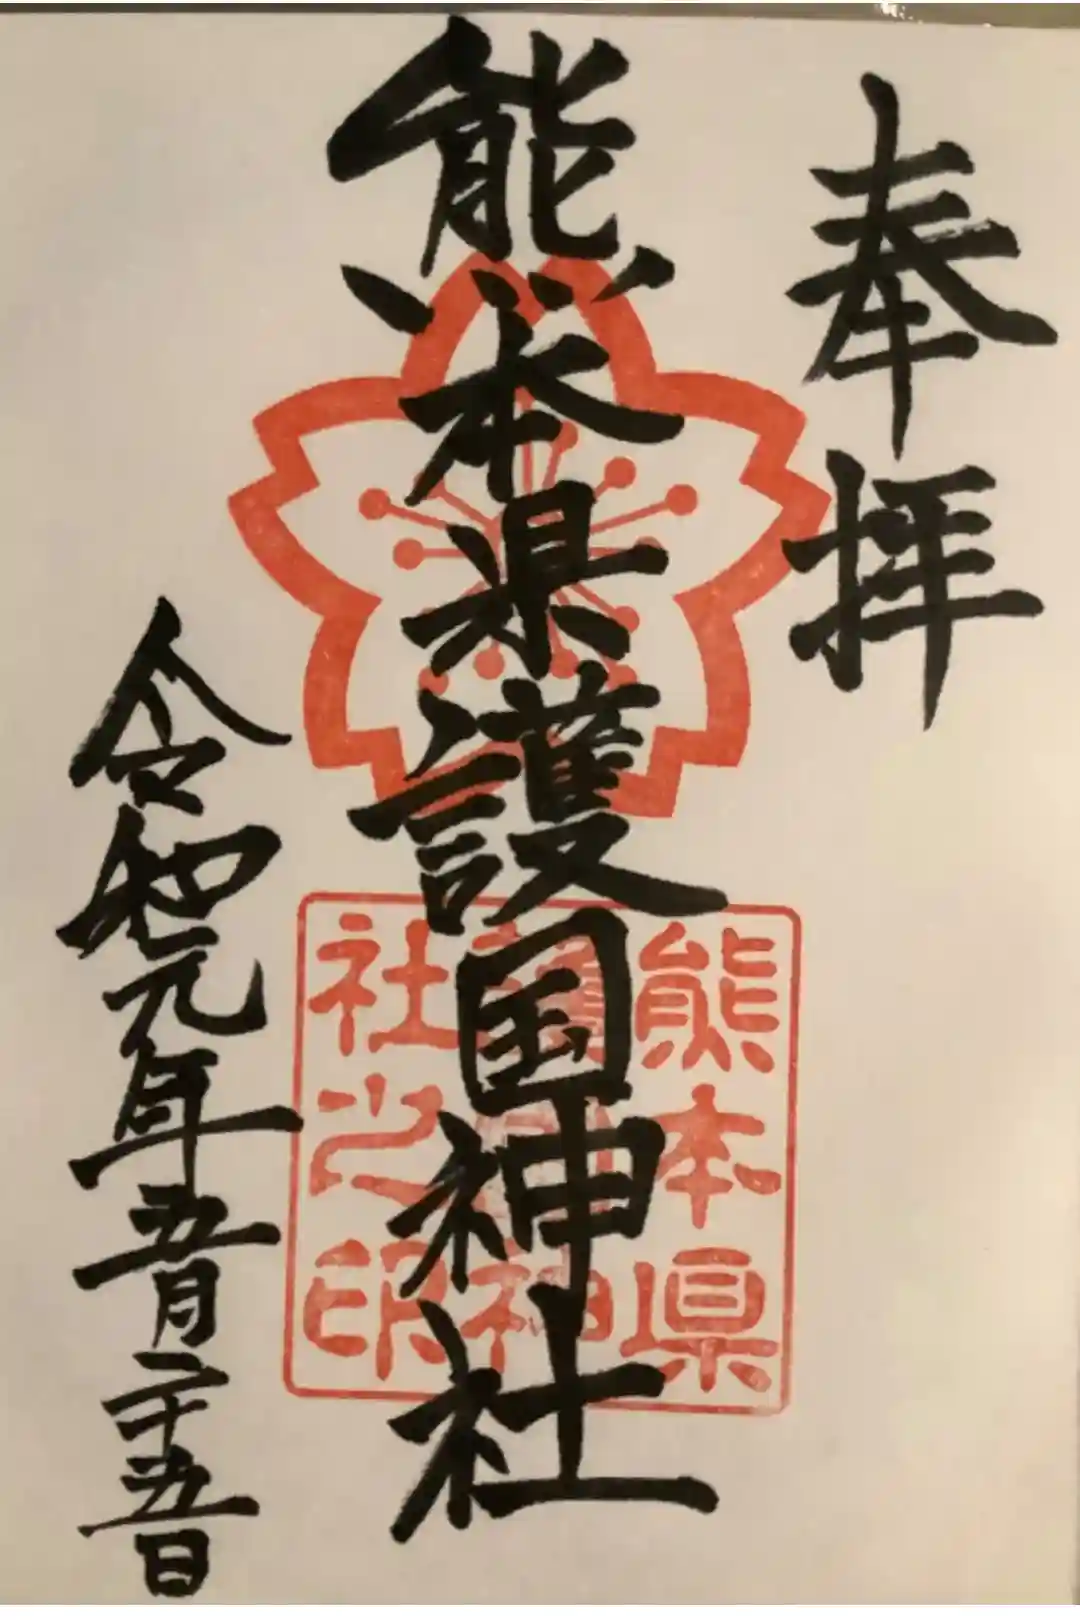 奉拝
熊本県護国神社
熊本県
護国神
社之印
令和元年五月二十五日